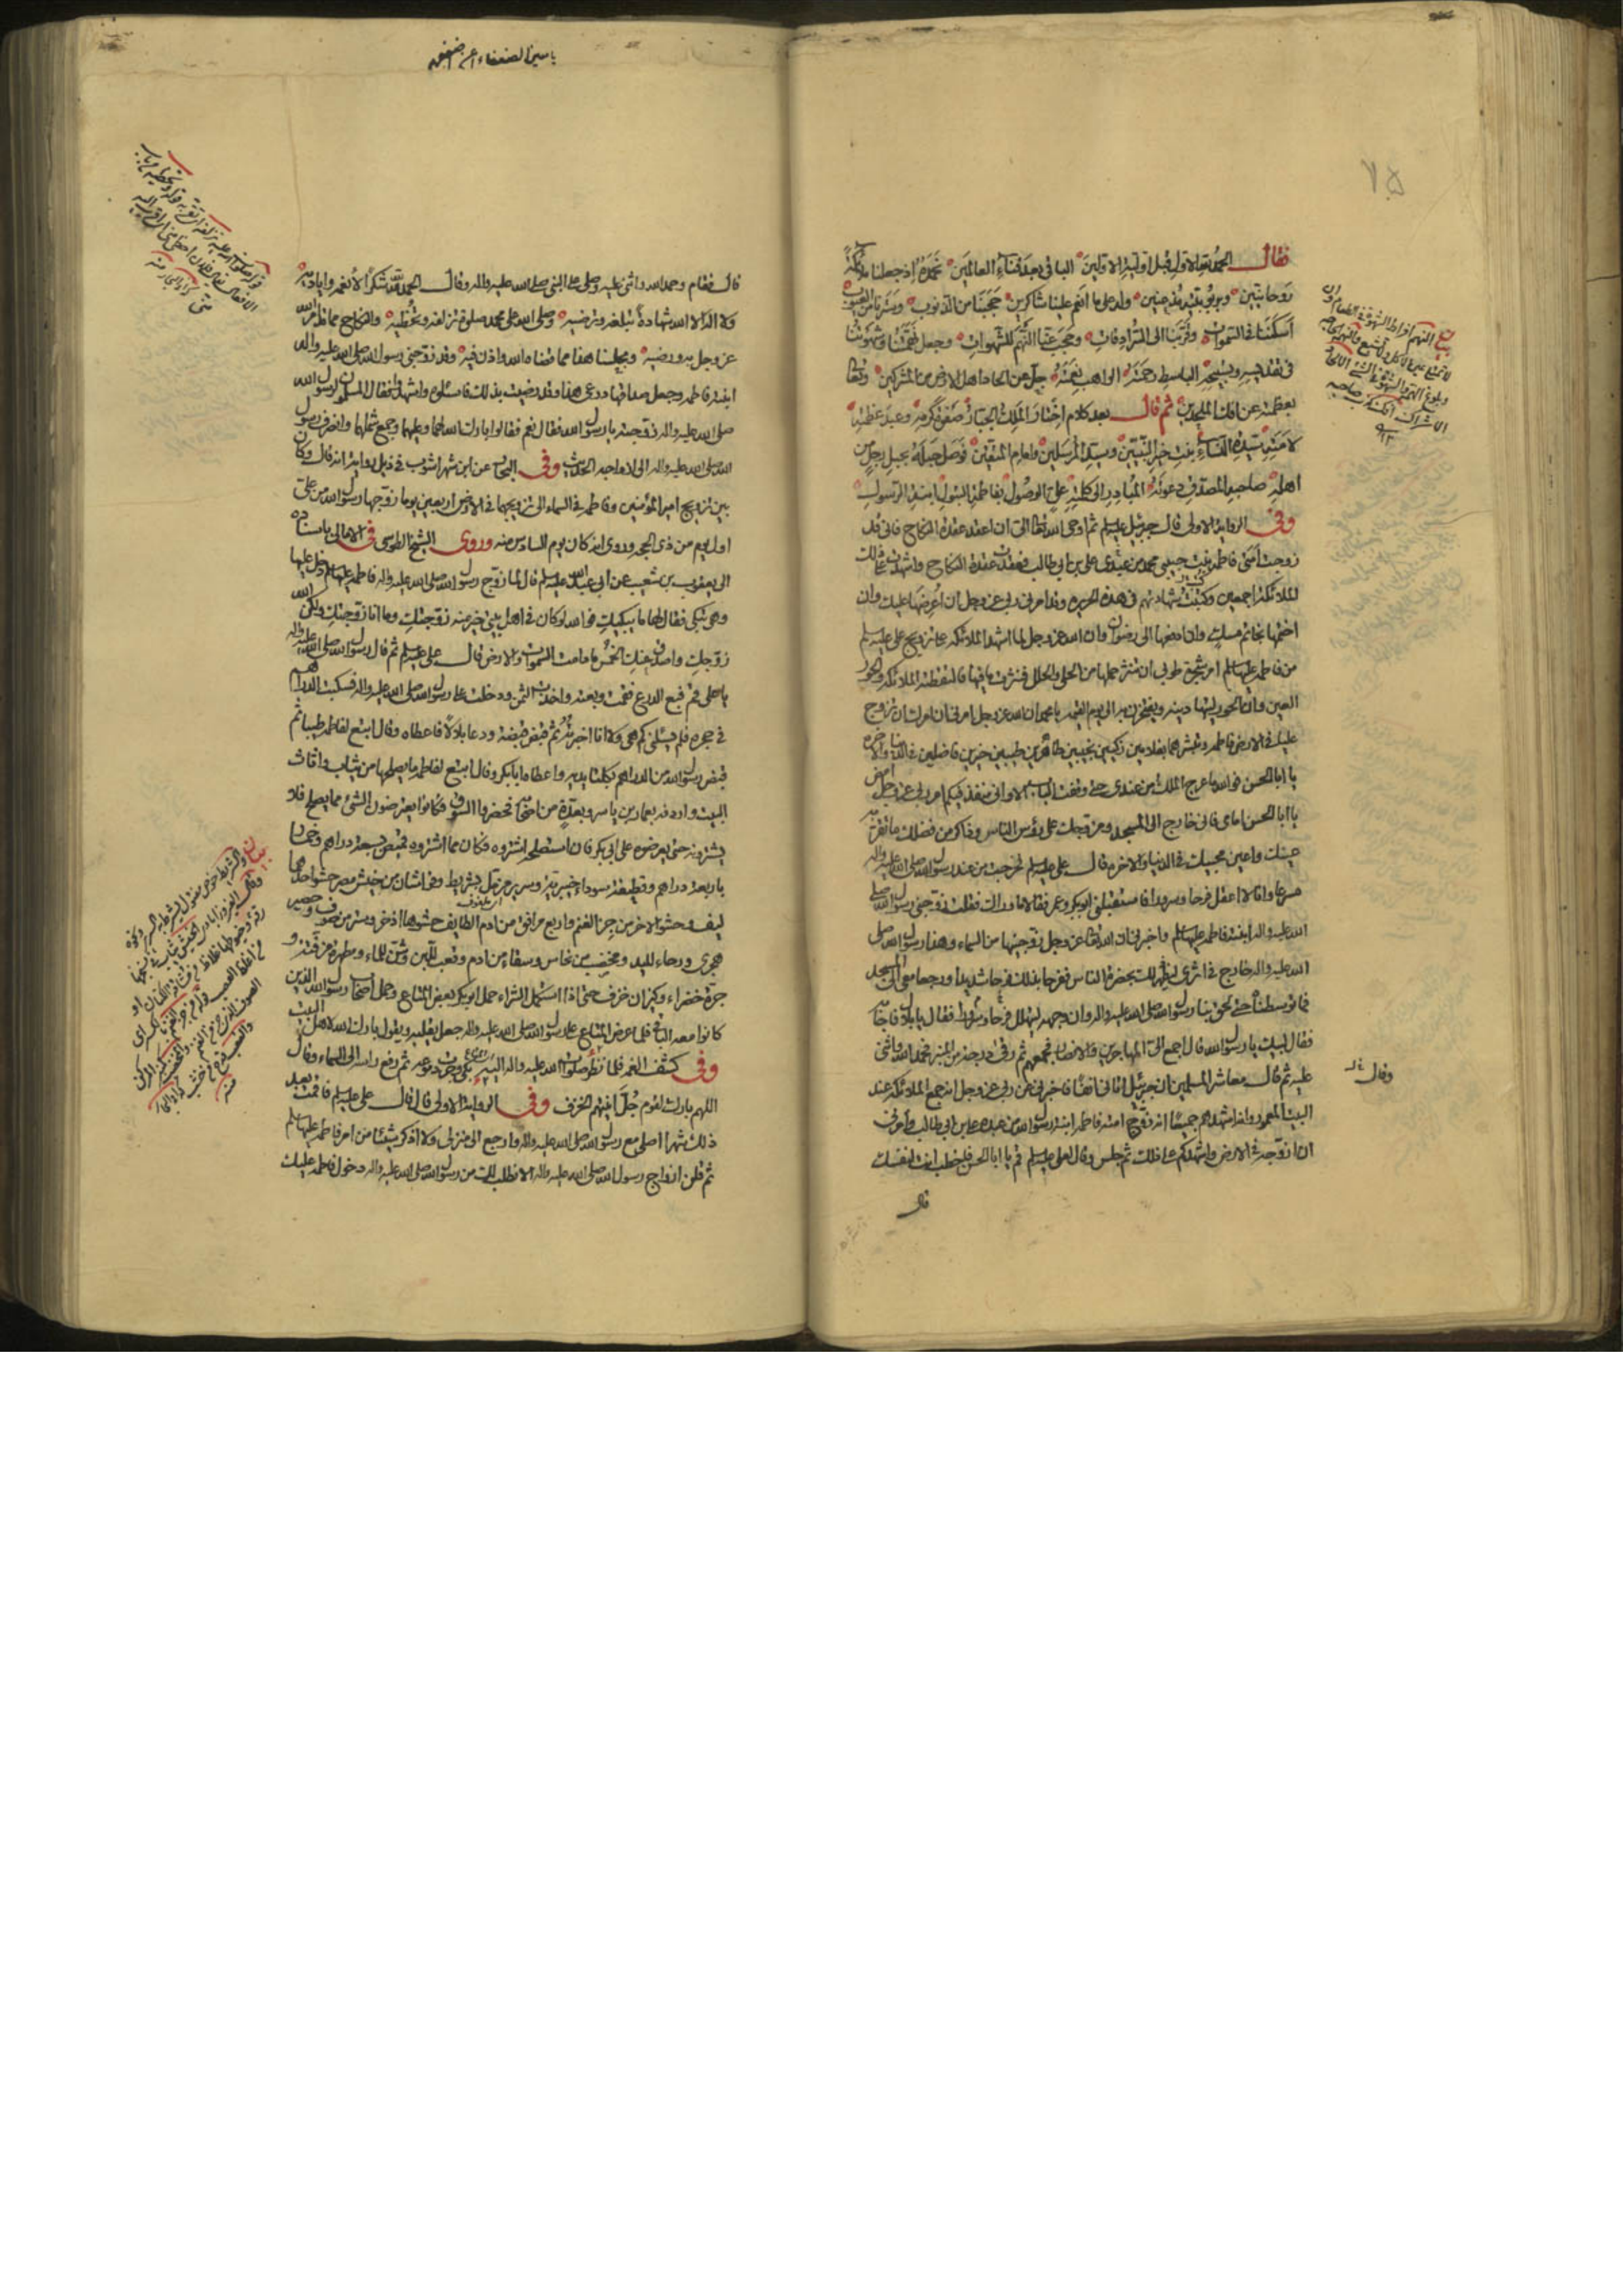 ٧٥
فقال الحمد لله الاول قبل اولية الاولين الباقي بعد فناء العالمين نحمده اذ جعلنا ملائكة
روحانيين وبربوبيته مذعنين وله على ما انعم علينا شاكرين حجبنا من الذنوب وسترنا من العيوب
اسكننا في السموات وقربنا الى السرادقات وحجب عنا النهم للشهوات وجعل نهمتنا وشهوتنا
في تقديسه وتسبيحه الباسط رحمته الواهب نعمته جل عن الحاد اهل الارض من المشركين وتعالى
بعظمته عن افك الملحدين ثم قال بعد كلام اختار الملك الجبار صفوة كرمه وعبد عظمته
لامته سيدة النساء بنت خير النبيين وسيد المرسلين وامام المتقين فوصل حبله بحبل رجل من
اهله صاحبه المصدق دعوته المبادر الى كلمته علي الوصول بفاطمة البتول ابنة الرسول
وفي الرواية الاولى قال جبرئيل عليه السلم ثم اوحى الله تعالى الي ان اعقد عقدة النكاح فاني قد
زوجت امتي فاطمة بنت حبيبي محمد من عبدي علي بن ابي طالب فعقدت عقدة النكاح واشهدت على ذلك
الملائكة اجمعين وكتبت شهادتهم في هذه الحريرة وقد امرني ربي عز وجل ان اعرضها عليك وان
اختمها بخاتم مسك وان ادفعها الى رضوان وان الله عز وجل لما اشهد الملائكة على تزويج علي عليه السلم
من فاطمة عليها السلم امر شجرة طوبى ان تنثر حملها من الحلي والحلل فنثرت ما فيها فالتقطته الملائكة والحور
العين وان الحور ليتهادينه ويفخرن به الى يوم القيمة يا محمد ان الله عز وجل امرني ان امرك ان تزوج
عليا في الارض فاطمة وتبشرهما بغلامين زكيين نجيبين طاهرين طيبين خيرين فاضلين في الدنيا والاخرة
يا ابا الحسن فوالله ما عرج الملك من عندي حتى دققت الباب الا واني منفذ فيكم امر ربي عز وجل امض
يا ابا الحسن امامي فاني خارج الى المسجد ومزوجك على رؤس الناس وذاكر من فضلك ما تقر به
عينك واعين محبيك في الدنيا والاخرة قال علي عليه السلم فخرجت من عند رسول الله صلى الله عليه واله
مسرعا وانا لا اعقل فرحا وسرورا فاستقبلني ابو بكر وعمر فقالا ما وراك فقلت زوجني رسول الله صلى
الله عليه واله ابنته فاطمة عليها السلم واخبرني ان الله تعالى عز وجل زوجنيها من السماء وهذا رسول الله صلى
الله عليه واله خارج في اثري ليظهر ذلك بحضرة الناس ففرحا بذلك فرحا شديدا ورجعا معي الى المسجد
فما توسطناه حتى لحق بنا رسول الله صلى الله عليه واله وان وجهه ليتهلل فرحا وسرورا فقال يا بلال فاجابه
فقال لبيك يا رسول الله قال اجمع الي المهاجرين والانصار فجمعهم ثم رقى درجة من المنبر فحمد الله واثنى
عليه ثم قال معاشر المسلمين ان جبرئيل اتاني انفا فاخبرني عن ربي عز وجل انه جمع الملائكة عند
البيت المعمور وانه اشهدهم جميعا انه زوج امته فاطمة ابنة رسول الله من عبده علي بن ابي طالب وامرني
ان ازوجه في الارض واشهدكم على ذلك ثم جلس وقال لعلي عليه السلم قم يا ابا الحسن فاخطب انت لنفسك
قال
قال فقام وحمد الله واثنى عليه وصلى على النبي صلى الله عليه واله وقال الحمد لله شكرا لانعمه واياديه
ولا اله الا الله شهادة تبلغه وترضيه وصلى الله على محمد صلوة تزلفه وتحظيه والنكاح مما امر الله
عز وجل به ورضيه ومجلسنا هذا مما قضاه الله واذن فيه وقد زوجني رسول الله صلى الله عليه واله
ابنته فاطمة وجعل صداقها درعي هذا وقد رضيت بذلك فاسئلوه واشهدوا فقال المسلمون لرسول الله
صلى الله عليه واله زوجته يا رسول الله فقال نعم فقالوا بارك الله لهما وعليهما وجمع شملهما وانصرف رسول
الله صلى الله عليه واله الى ازواجه الحديث وفي البحار عن ابن شهراشوب في ذيل رواية انه قال وكان
بين تزويج امير المؤمنين وفاطمة في السماء الى تزويجهما في الارض اربعين يوما زوجها رسول الله من علي
اول يوم من ذي الحجة وروى انه كان يوم السادس منه وروى الشيخ الطوسي في الامالي باسناده
الى يعقوب بن شعيب عن ابي عبد الله عليه السلم قال لما زوج رسول الله صلى الله عليه واله فاطمة عليا دخل عليها
وهي تبكي فقال لها ما يبكيك فوالله لو كان في اهل بيتي خير منه زوجتك وما انا زوجتك ولكن الله
زوجك واصدق عنك الخمس ما دامت السموات والارض قال علي عليه السلم ثم قال رسول الله صلى الله عليه واله
يا علي قم فبع الدرع فقمت وبعته واخذت الثمن ودخلت على رسول الله صلى الله عليه واله فسكبت الدراهم
في حجره فلم يسئلني كم هي ولا انا اخبرته ثم قبض قبضة ودعا بلالا فاعطاه وقال ابتع لفاطمة طيبا ثم
قبض رسول الله من الدراهم بكلتا يديه واعطاه ابا بكر وقال ابتع لفاطمة ما يصلحها من ثياب واثاث
البيت واردفه بعمار بن ياسر وبعدة من اصحابه فحضروا السوق فكانوا يعترضون الشئ مما يصلح فلا
يشترونه حتى يعرضوه على ابي بكر فان استصلحه اشتروه فكان مما اشتروه قميص بسبعة دراهم وخمار
باربعة دراهم وقطيفة سوداء خيبرية وسرير مزمل بشريط وفراشان من خيش مصر حشو احدهما
ليف وحشو الاخر من جز الغنم واربع مرافق من ادم الطايف حشوها اذخر وستر من صوف وحصير
هجري ورحاء لليد ومخضب من نحاس وسقاء من ادم وقعب للبن وشن للماء ومطهرة مزفتة و
جرة خضراء وكيزان خزف حتى اذا استكمل الشراء حمل ابو بكر بعض المتاع وحمل اصحاب رسول الله الذين
كانوا معه الباقي فلما عرض المتاع على رسول الله صلى الله عليه واله جعل يقلبه ويقول بارك الله لاهل البيت
وفي كشف الغمة فلما نظر صلوات الله عليه واله اليه بكى وجرت دموعه ثم رفع راسه الى السماء وقال
اللهم بارك لقوم جل انيتهم الخزف وفي الرواية الاولى قال قال علي عليه السلم فاقمت بعد
ذلك شهرا اصلي مع رسول الله صلى الله عليه واله وارجع الى منزلي ولا اذكر شيئا من امر فاطمة عليها السلم
ثم قلن ازواج رسول الله صلى الله عليه واله الا نطلب لك من رسول الله صلى الله عليه واله دخول فاطمة عليك